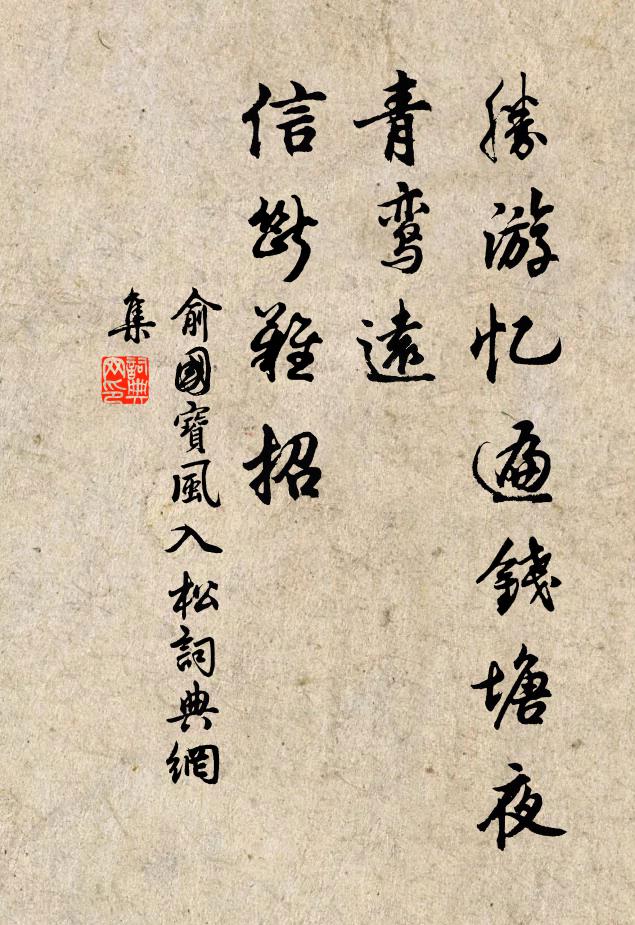 勝游忆遍錢塘夜
青鸾遠
信斷難招
俞國寶風入松詞典網
集
詞典
网印